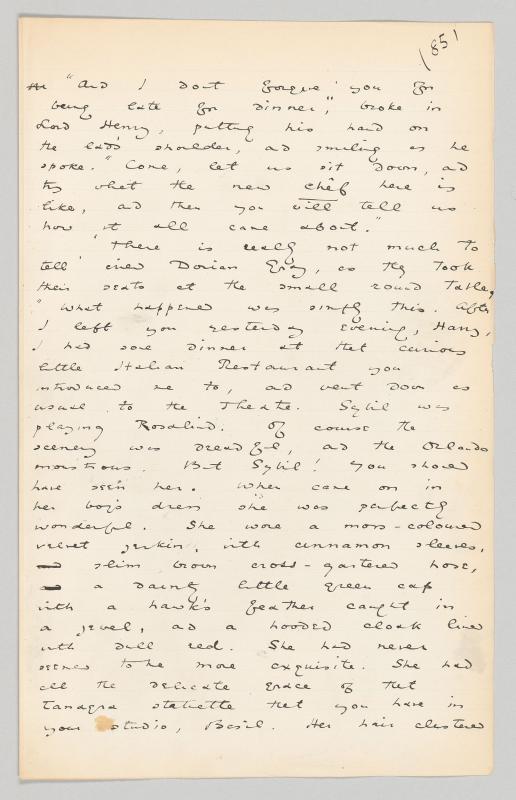 (85)
"And I dont forgive you for
being late for dinner", broke in
Lord Henry, putting his hand on
the lad's shoulder, and smiling as he
spoke. "Come, let us sit down, and
try what the new chêf here is
like, and then you will tell us
how it all came about."
"There is really not much to
tell" cried Dorian Gray, as they took
their seats at the small round table,
"What happened was simply this. After
I left you yesterday evening, Harry,
I had some dinner at that curious
little Italian Restaurant you
introduced me to, and went down as
usual to the Theatre. Sybil was
playing Rosalind. Of course the
scenery was dreadful, and the Orlando
monstrous. But Sybil! You should
have seen her. When came on in
her boy's dress she was perfectly
wonderful. She wore a moss-coloured
velvet jerkin, with cinnamon sleeves,
slim brown cross-gartered hose,
a dainty little green cap
with a hawk's feather caught in
a jewel, and a hooded cloak lined
with dull red. She had never
seemed to me more exquisite. She had
all the delicate grace of that
Tanagra statuette that you have in
your studio, Basil. Her hair clustered